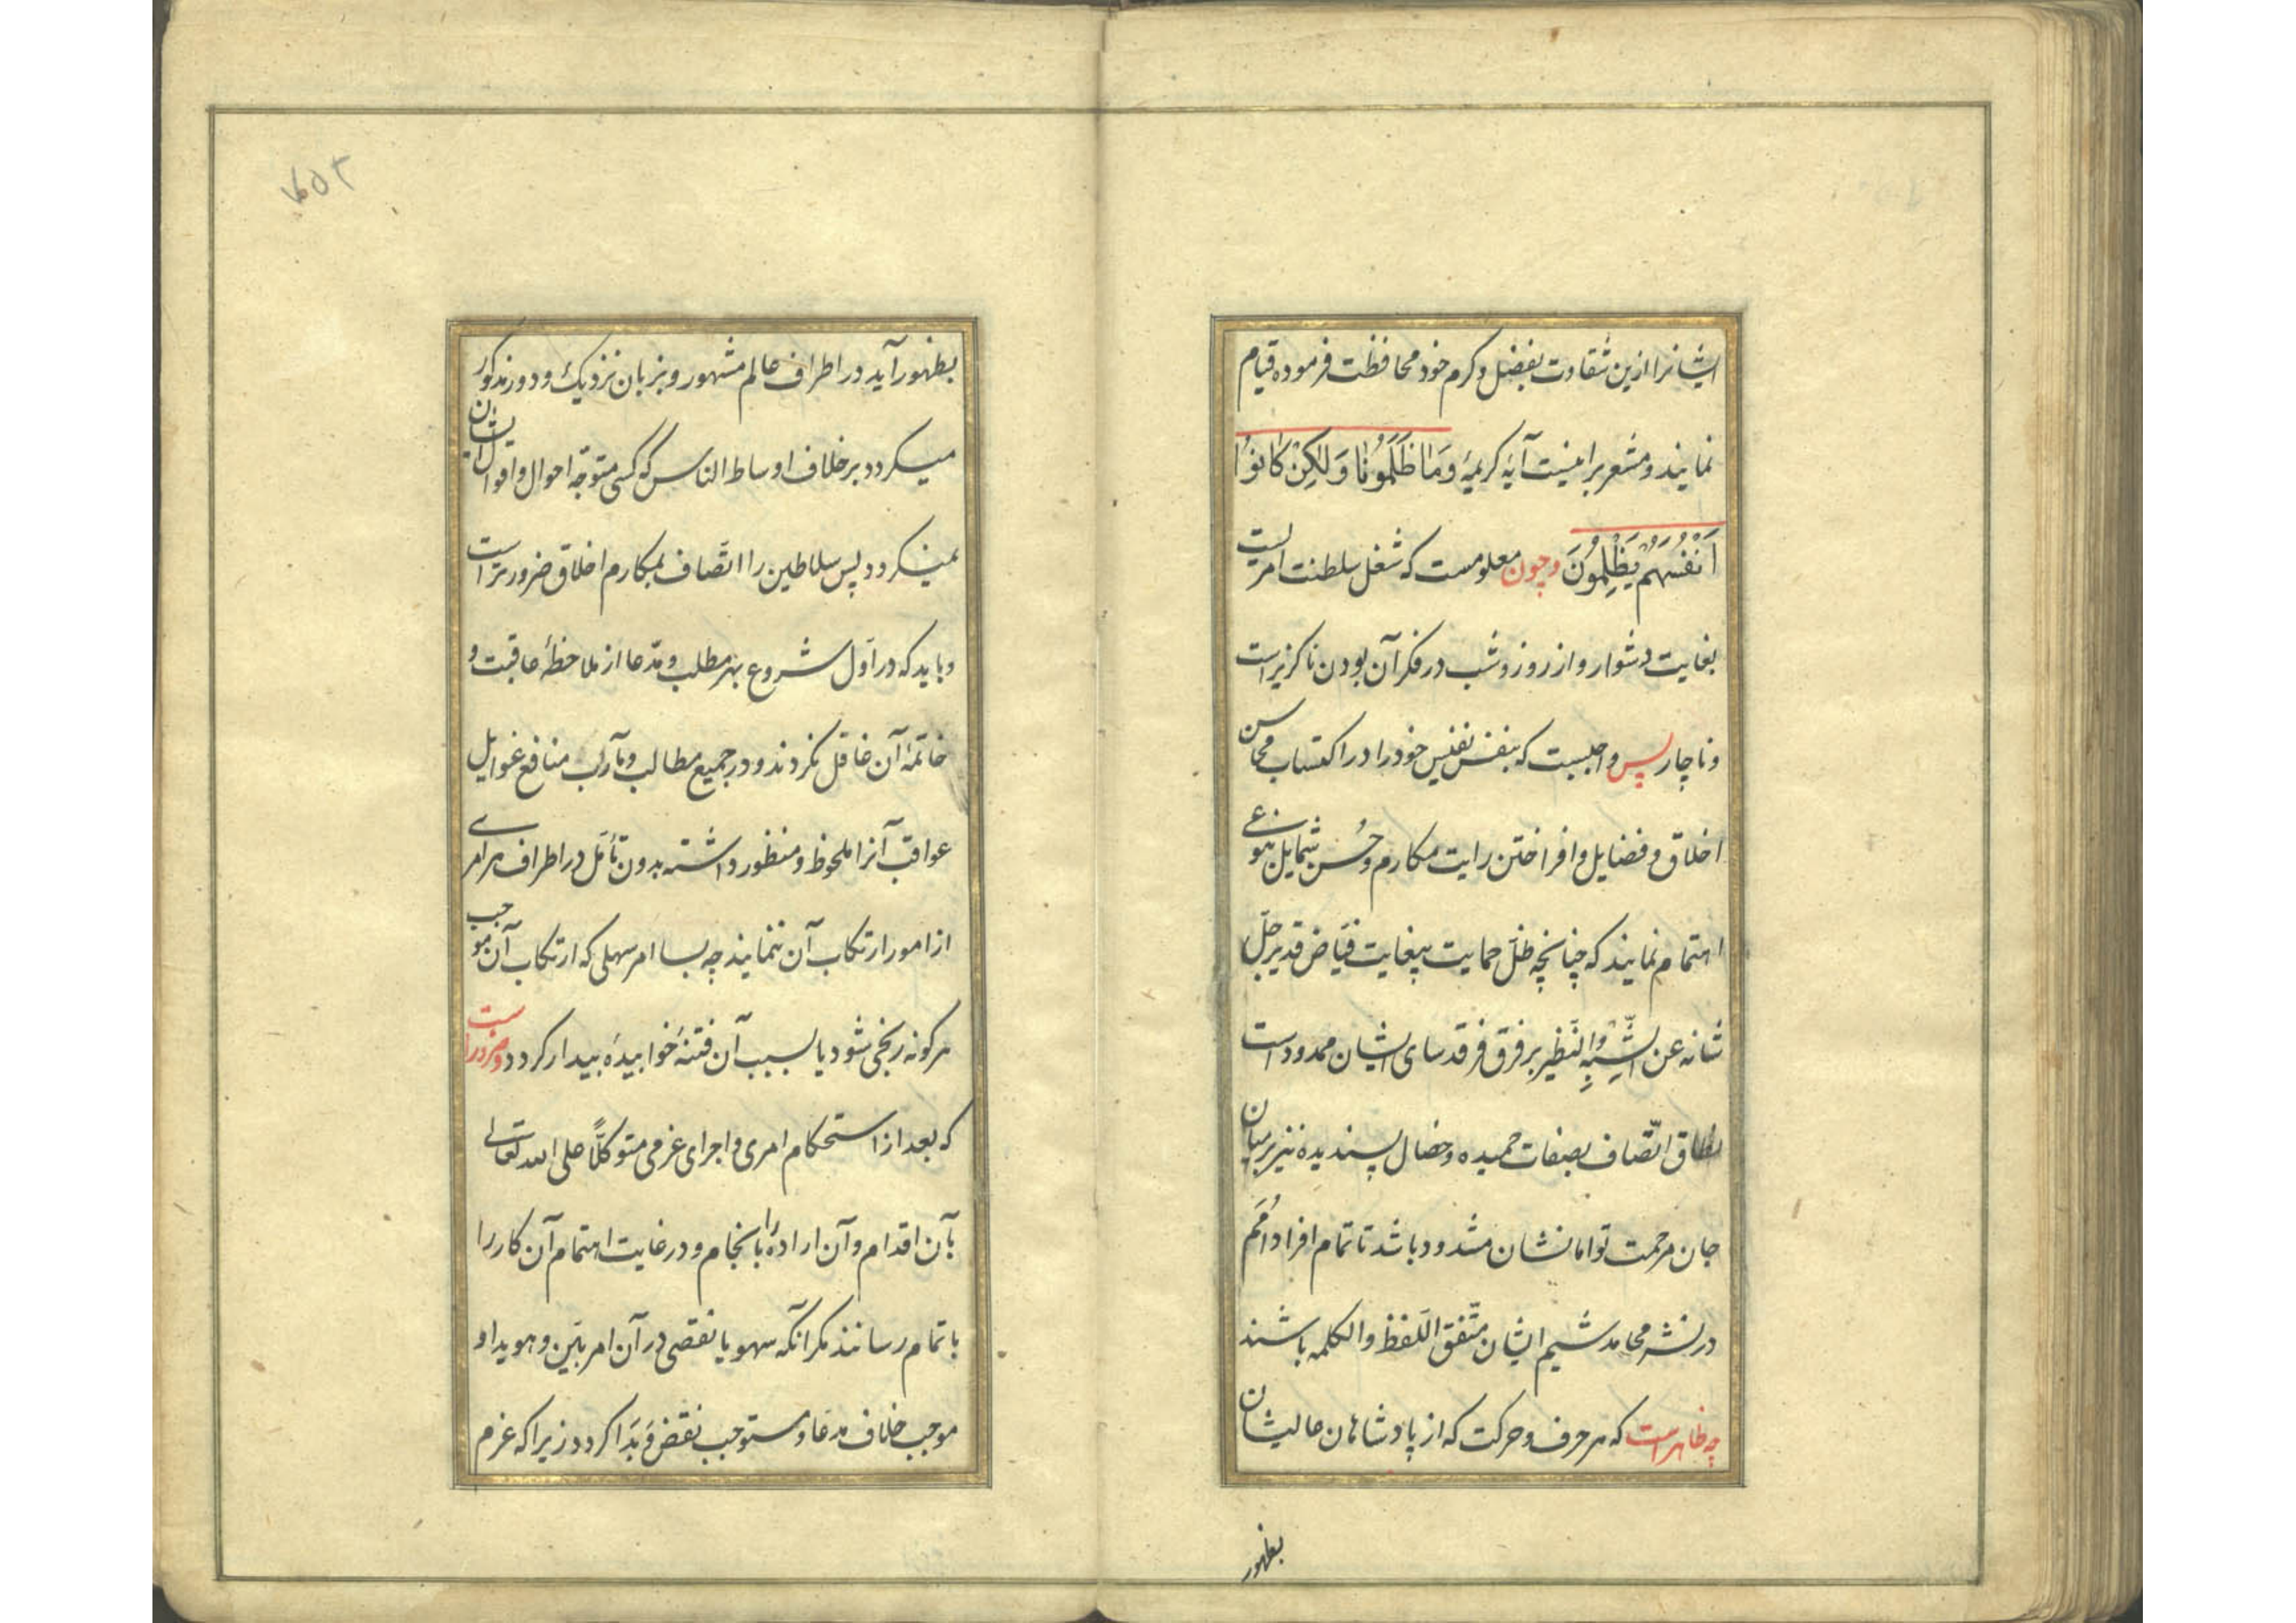 ایشانرا ازین شقاوت بفضل و کرم خود محافظت فرموده قیام
نمایند و مشعر براینست آیهٔ کریمهٔ وَمَا ظَلَمُونَا وَلٰکِنْ کَانُوْا
اَنْفُسَهُمْ یَظْلِمُوْنَ و چون معلومست که شغل سلطنت امریست
بغایت دشوار و از روز و شب در فکر آن بودن ناکزیر است
و ناچار پس واجبست که بنفس نفیس خود را در اکتساب محاسن
اخلاق و فضایل و افراختن رایت مکارم و حُسن شمایل بنوعی
اهتمام نمایند که چنانچه ظلّ حمایت بیغایت فیّاض قدیر جلّ
شانه عن الشّبِیْهِ وَالنَّظیر بر فرق فرقد سای ایشان ممدود است
نطاق اتّصاف بصفات حمیده و خصال پسندیده نیز بر میان
جان مرحمت توامانشان مشدود باشد تا تمام افراد اُمَم
در نشر محامد شیم ایشان متّفق اللّفظ والکلمه باشند
چه ظاهر است که هر حرف و حرکت که از پادشاهان عالیشان
بظهور
۲۵۲
بظهور آید در اطراف عالم مشهور و بزبان نزدیک و دور مذکور
میکردد برخلاف اوساط الناس که کسی متوجّه احوال و اقوال ایشان
نمیکردد پس سلاطین را اتّصاف بمکارم اخلاق ضرورتر است
و باید که در اوّل شروع بهر مطلب و مدّعا از ملاحظهٔ عاقبت و
خاتمهٔ آن غافل نکردند و در جمیع مطالب و مآرب منافع غوایل
عواقب آنرا ملحوظ و منظور داشته بدون تأمّل در اطراف هر امری
از امور ارتکاب آن ننمایند چه بسا امر سهلی که ارتکاب آن موجب
هر کونه رنجی شود یا بسبب آن فتنهٔ خوابیده بیدار کردد و ضرور است
که بعد از استحکام امری و اجرای عزمی متوکلّاً علی الله تعالی
بآن اقدام و آن اراده را بانجام و در غایت اهتمام آن کار را
باتمام رسانند مکر آنکه سهو یا نقصی در آن امر بیّن و هویدا و
موجب خلاف مدعا و مستوجب نقض و بَدَا کردد زیرا که عزم